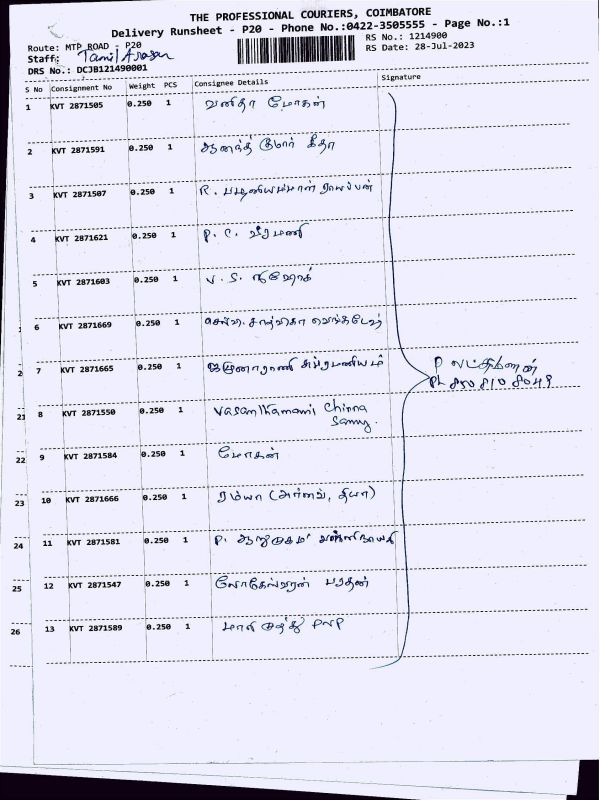 THE PROFESSIONAL COURIERS, COIMBATORE
Delivery Runsheet - P20 - Phone No.:0422-3505555 - Page No.:1
Route: MTP ROAD - P20
RS No.: 1214900
Staff: Tamil Arasan
RS Date: 28-Jul-2023
DRS No.: DCJB121490001
S No Consignment No Weight PCS Consignee Details Signature
1 KVT 2871505 0.250 1 வனிதா மோகன்
2 KVT 2871591 0.250 1 ஆனந்த் குமார் கீதா
3 KVT 2871507 0.250 1 R. பழனியம்மாள் ராயப்பன்
4 KVT 2871621 0.250 1 P. C. வீரமணி
5 KVT 2871603 0.250 1 V. S.
6 KVT 2871669 0.250 1 செல்வி.
2 7 KVT 2871665 0.250 1 ஜமுனாராணி சுப்ரமணியம்
P லட்சுமணன்
PL 850 810 8049
21 8 KVT 2871550 0.250 1 Vasanthamani Chinna
Samy.
22 9 KVT 2871584 0.250 1 மோகன்
23 10 KVT 2871666 0.250 1 ரம்யா (அர்னவ், தியா)
24 11 KVT 2871581 0.250 1 P. ஆறுமுகம் வள்ளிநாயகி
25 12 KVT 2871547 0.250 1 லோகேஸ்வரன் பரதன்
26 13 KVT 2871589 0.250 1 மாரி முத்து PNP